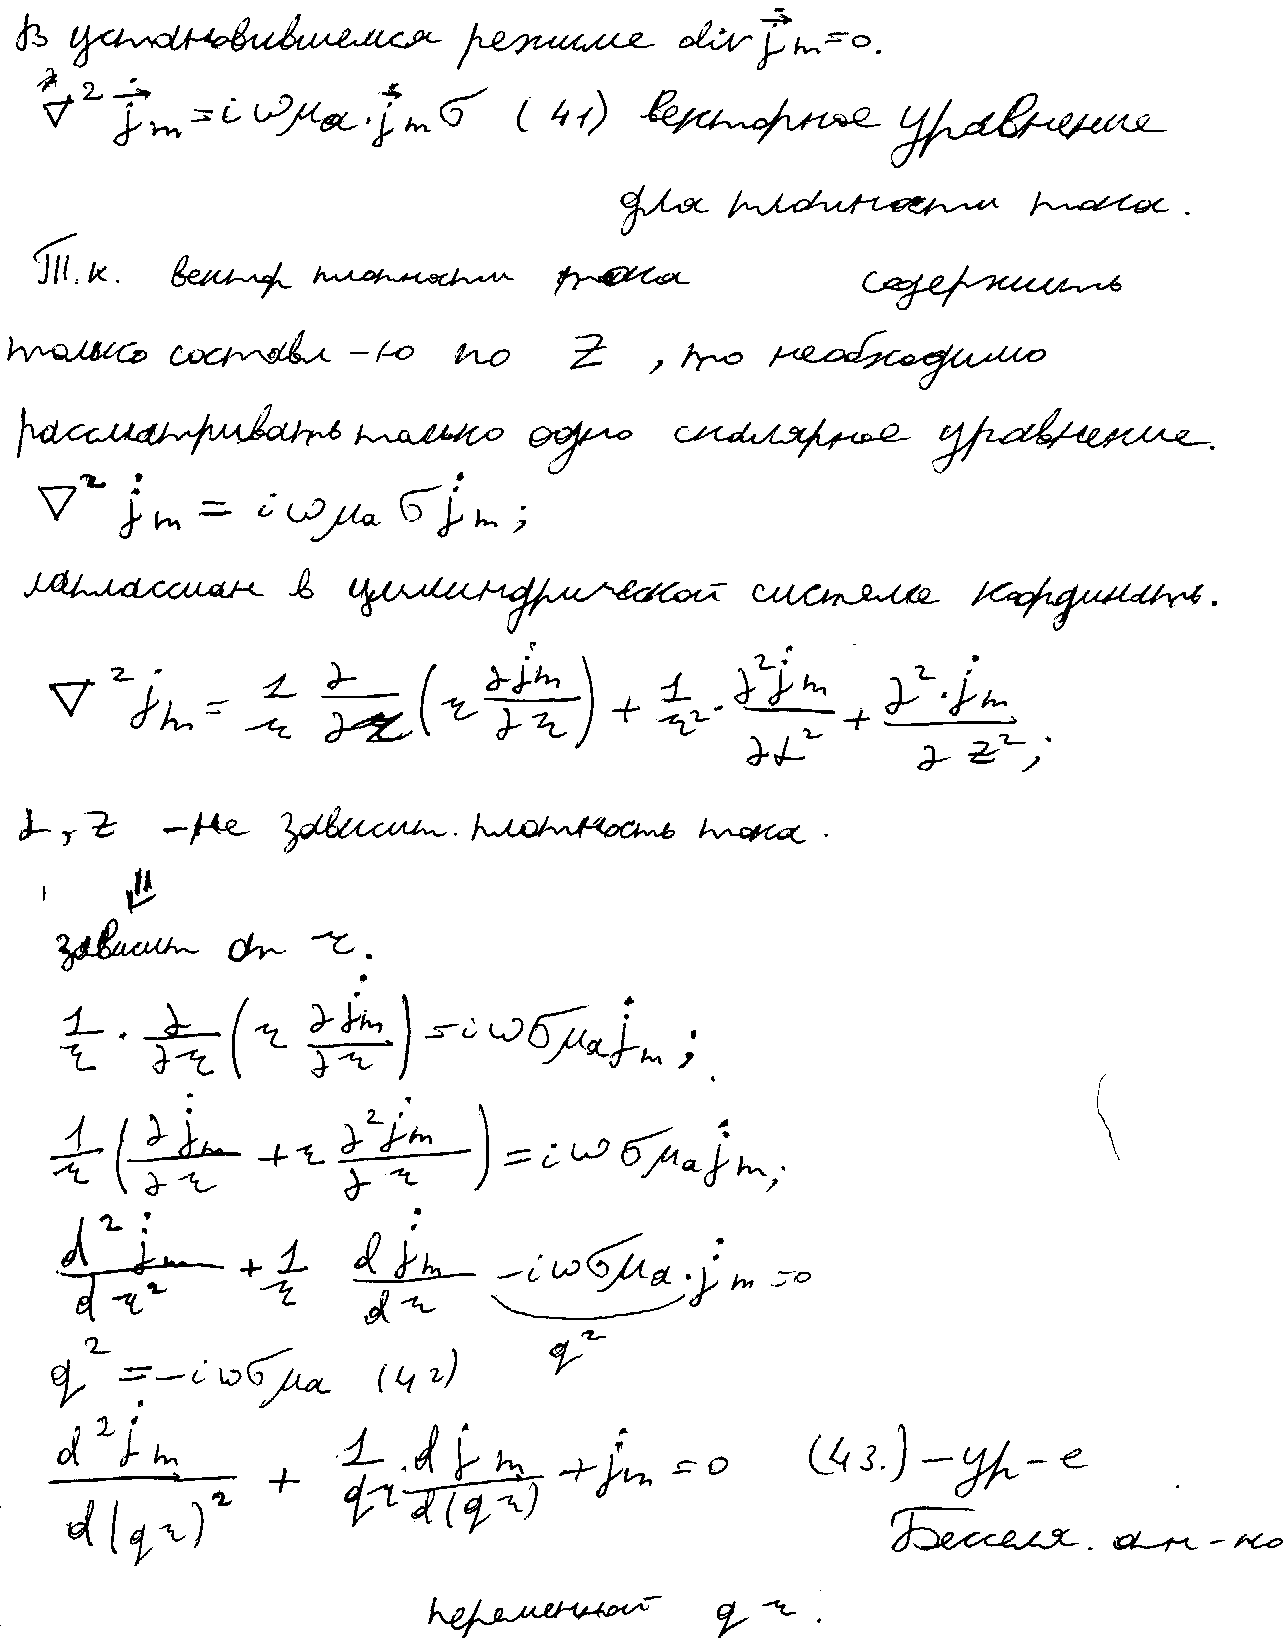 В установившемся режиме div j⃗ₘ=0.
∇² j⃗ₘ = iωμₐ·j⃗ₘσ (41) векторное уравнение
для плотности тока.
Т.к. вектор плотности тока содержить
только составл-ю по Z, то необходимо
рассматривать только одно скалярное уравнение.
∇² j̇ₘ = iωμₐσj̇ₘ;
лапласиан в цилиндрической системе кординать.
∇² j̇ₘ = 1/r ∂/∂r (r ∂j̇ₘ/∂r) + 1/r² · ∂²j̇ₘ/∂α² + ∂²·j̇ₘ/∂z²;
α, z - не зависит. плотность тока.
⇓
зависит от r.
1/r · ∂/∂r (r ∂j̇ₘ/∂r) = iωσμₐj̇ₘ;
1/r (∂j̇ₘ/∂r + r ∂²j̇ₘ/∂r) = iωσμₐj̇ₘ;
d²j̇ₘ/dr² + 1/r dj̇ₘ/dr - iωσμₐ·j̇ₘ = 0
q²
q² = -iωσμₐ (42)
d²j̇ₘ/d(qr)² + 1/qr · dj̇ₘ/d(qr) + j̇ₘ = 0 (43.) - ур-е
Бесселя. отн-но
переменной qr.